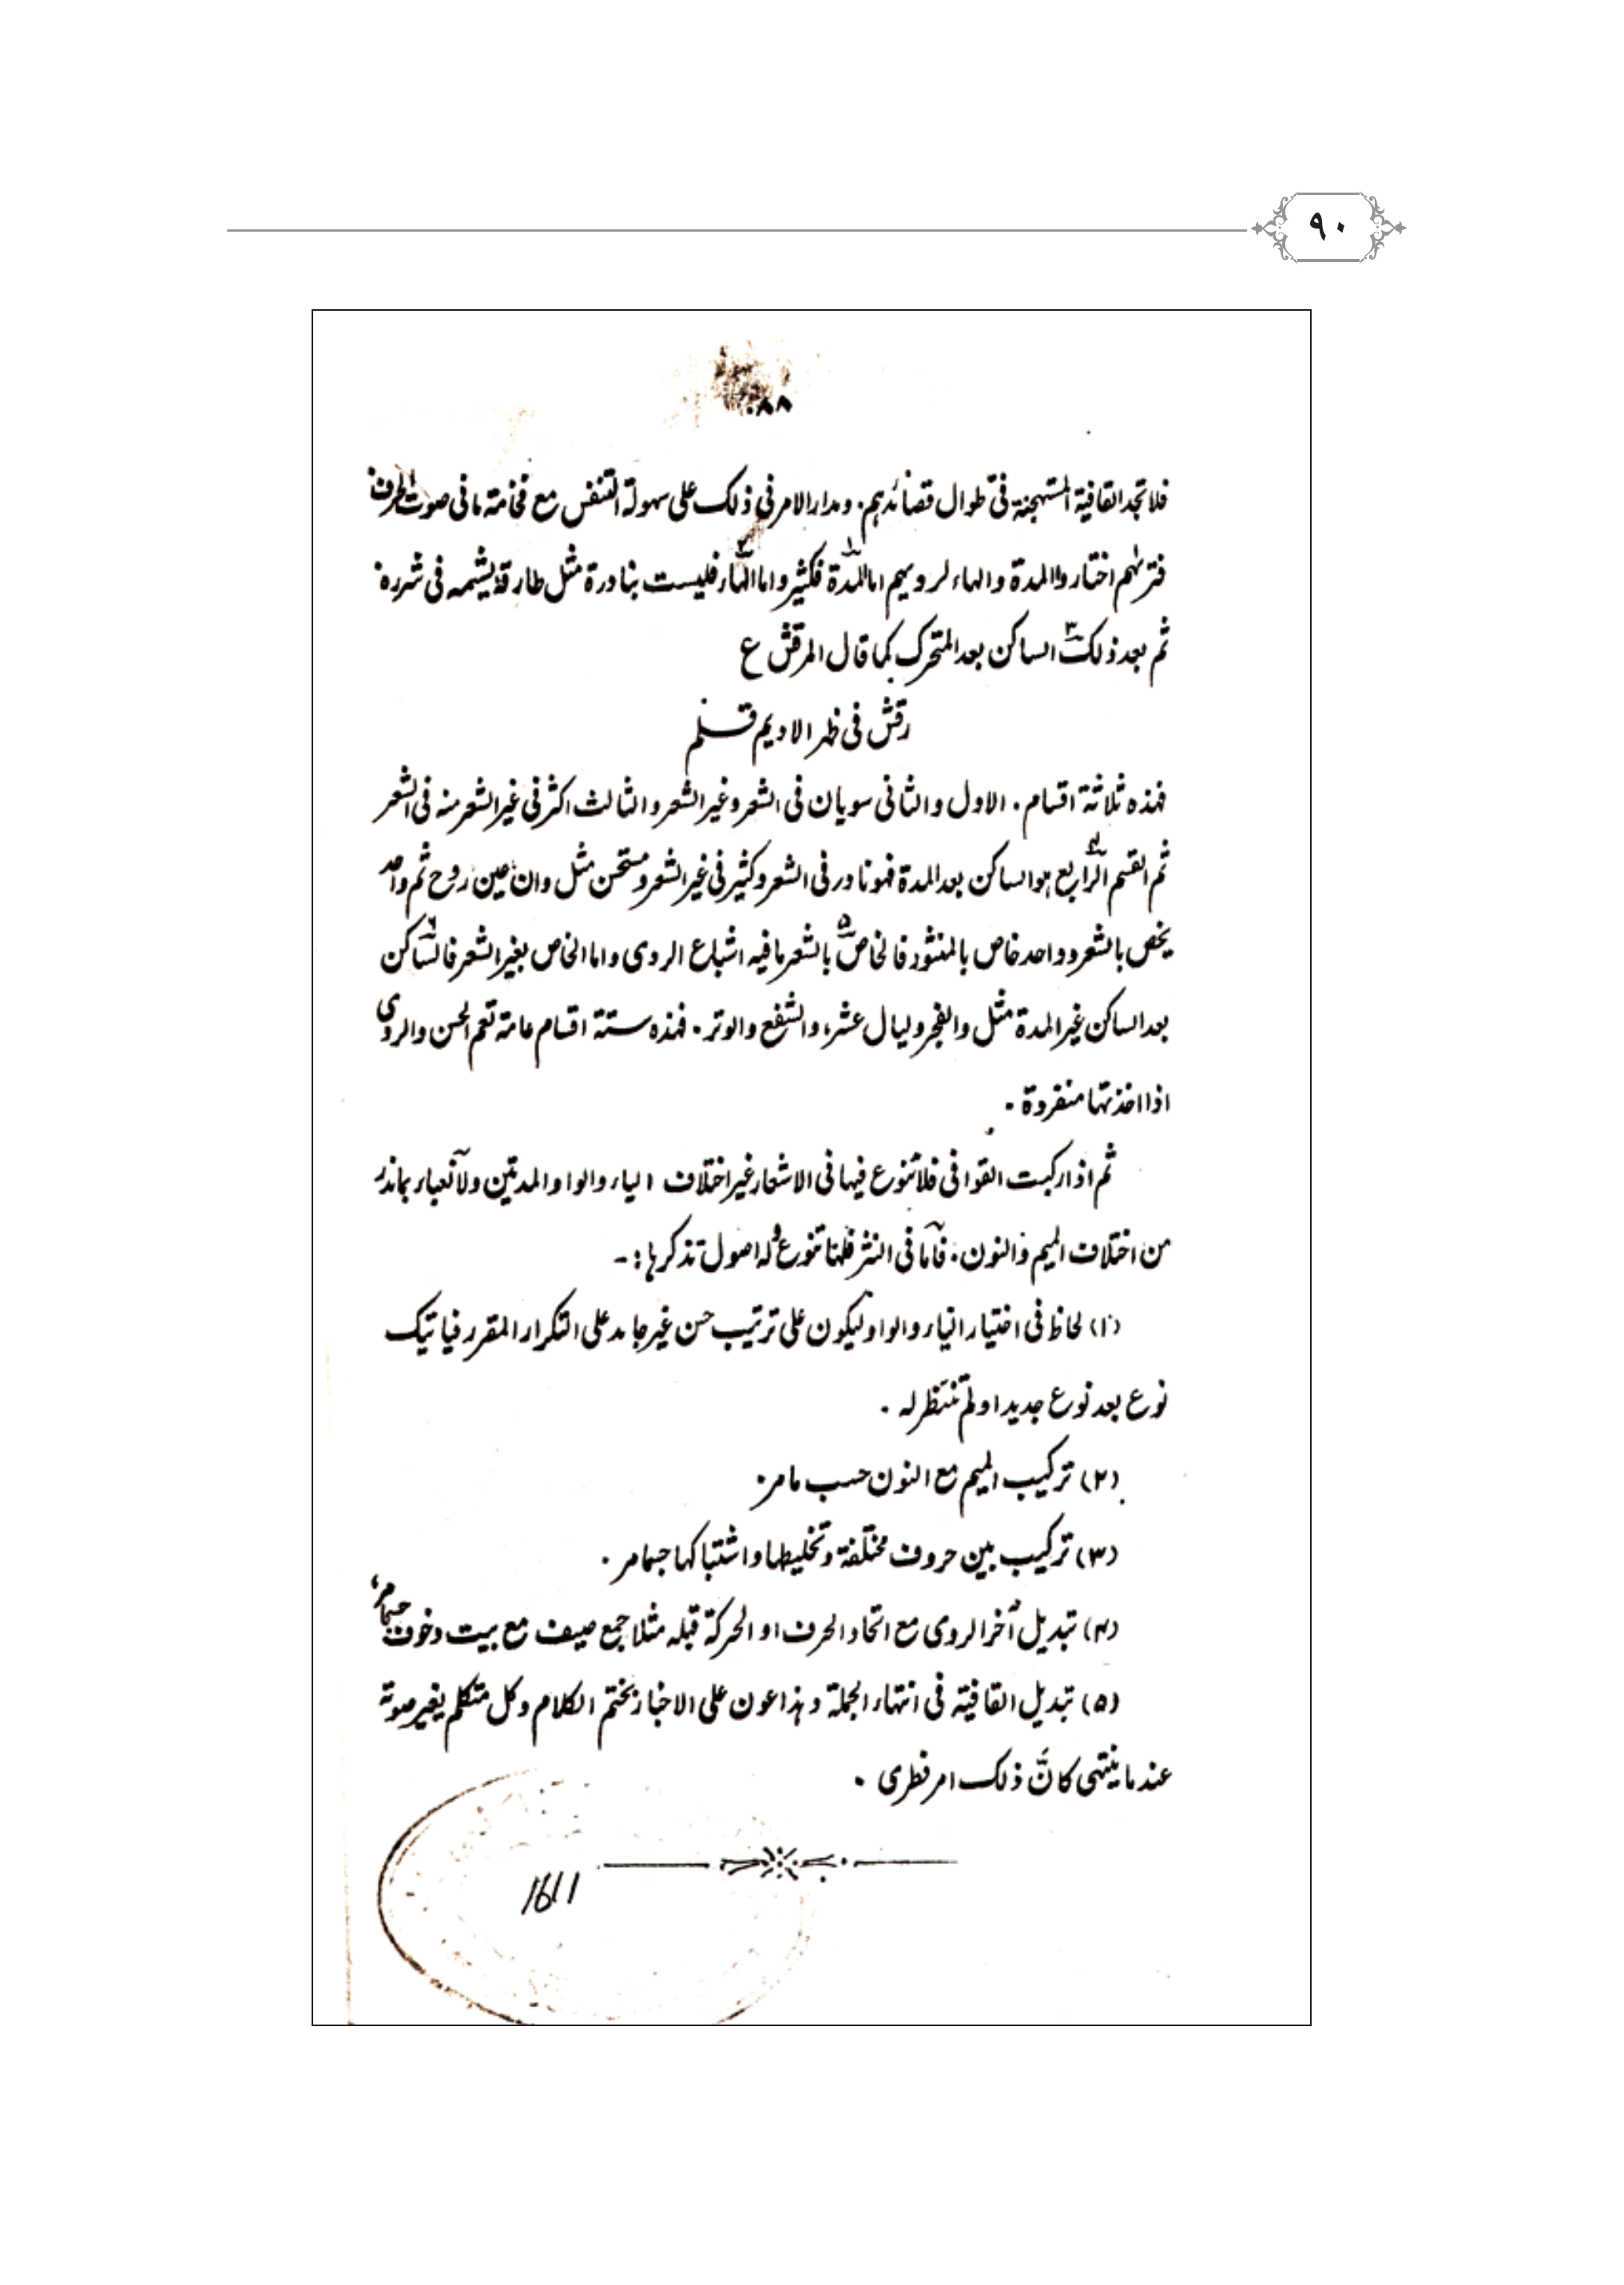 ٩٠
٨٨
فلا تجد القافية المستهجنة فى طوال قصائدهم. ومدار الامر فى ذلك على سهولة التنفس مع فخامة ما فى صوت الحرف
فترىهم اختاروا المدة والهاء لرويهم اما المدة١ فكثير واما الهاء٢ فليست بنادرة مثل طارقة يشمه فى شرره
ثم بعد ذلك٣ الساكن بعد المتحرك كما قال المرقش ع
رقش فى ظهر الاديم قلم
فهذه ثلاثة اقسام. الاول والثانى سويان فى الشعر وغير الشعر والثالث اكثر فى غير الشعر منه فى الشعر
ثم القسم الرابع٤ هو الساكن بعد المدة فهو نادر فى الشعر وكثير فى غير الشعر ومستحسن مثل وان عين روح ثم واحد
يخص بالشعر وواحد خاص بالمنثور فالخاص٥ بالشعر ما فيه اشباع الروى واما الخاص بغير الشعر فالساكن٦
بعد الساكن غير المدة مثل والفجر وليال عشر، والشفع والوتر. فهذه ستة اقسام عامة تعم الحسن والردى
اذا اخذتها منفردة.
ثم اذا ركبت القوافى فلا تنوع فيها فى الاشعار غير اختلاف الياء والواو المدتين ولا نعباء بماندر
من اختلاف الميم والنون. فأما فى النثر فلها تنوع وله اصول تذكرها:-
(١) لحاظ فى اختيار الياء والواو ليكون على ترتيب حسن غير جامد على التكرار المقرر فياتيك
نوع بعد نوع جديد او لم تنتظر له.
(٢) تركيب الميم مع النون حسب مامر.
(٣) تركيب بين حروف مختلفة وتخليطها واشتباكها حسبمامر.
(٤) تبديل آخر الروى مع اتحاد الحرف او الحركة قبله مثلا جمع صيف مع بيت وخوف حسبمامر
(٥) تبديل القافية فى انتهاء الجملة وهذا عون على الاخبار بختم الكلام وكل متكلم يغير صوته
عند ما ينتهى كانّ ذلك امر فطرى.
1611